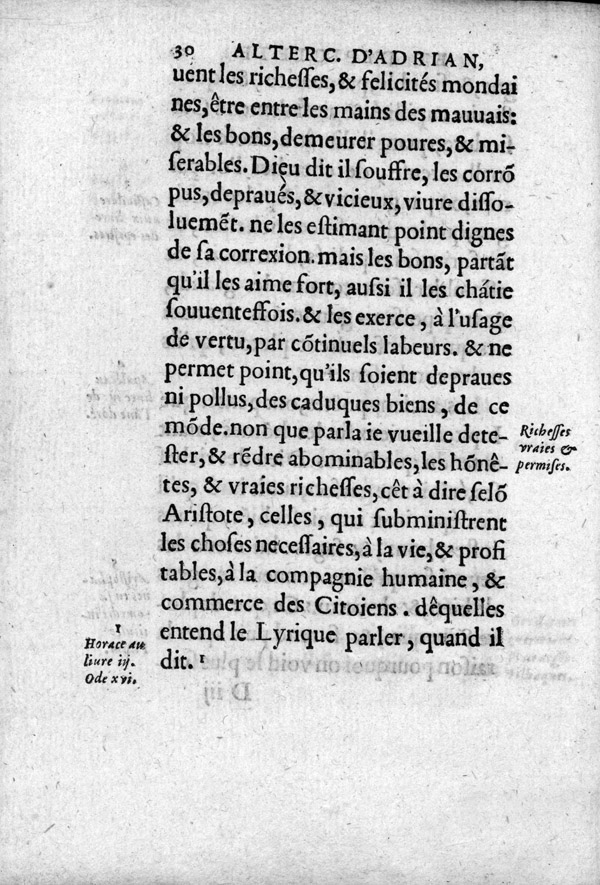 30 ALTERC. D'ADRIAN,
uent les richesses, & felicités mondai
nes, être entre les mains des mauuais:
& les bons, demeurer poures, & mi-
serables. Dieu dit il souffre, les corrõ
pus, deprauės, & vicieux, viure disso-
luemẽt. ne les estimant point dignes
de sa correxion. mais les bons, partãt
qu'il les aime fort, aussi il les châtie
souuenteffois. & les exerce, à l'usage
de vertu, par cõtinuels labeurs. & ne
permet point, qu'ils soient depraues
ni pollus, des caduques biens, de ce
mõde. non que parla ie vueille dete-
ster, & rẽdre abominables, les hõnê-
tes, & vraies richesses, cêt à dire selõ
Aristote, celles, qui subministrent
les choses necessaires, à la vie, & profi
tables, à la compagnie humaine, &
commerce des Citoiens. dêquelles
entend le Lyrique parler, quand il
dit. 1
Richesses
vraies &
permises.
1
Horace au
liure iij.
Ode xvi.